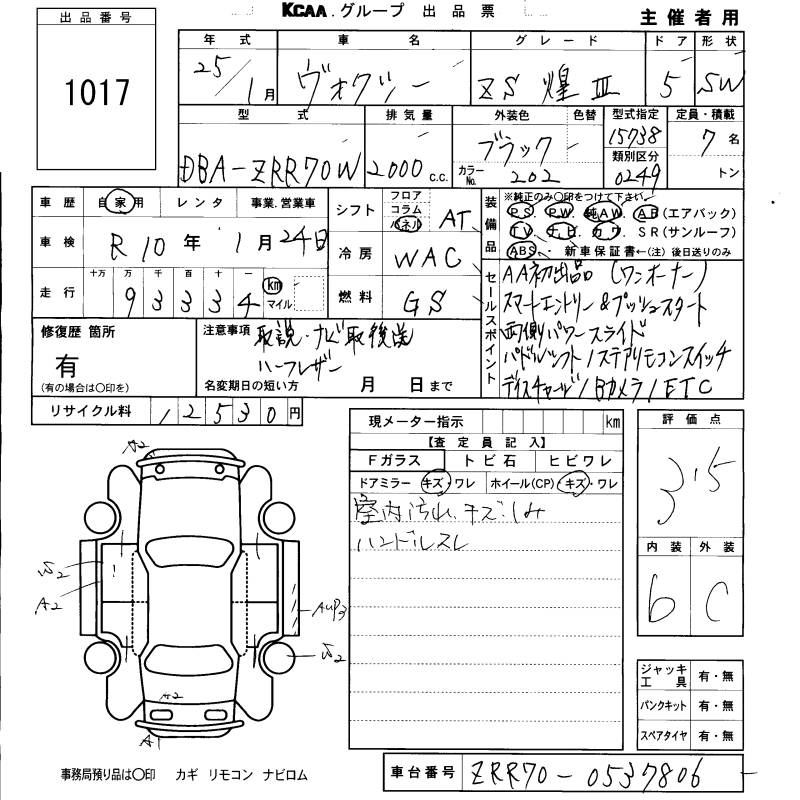 KCAA.グループ 出品票
主催者用
出品番号
1017
年式 車名 グレード ドア 形状
25/1月 ヴォクシー ZS 煌Ⅲ 5 SW
型式 排気量 外装色 色替 型式指定 定員・積載
DBA-ZRR70W 2000c.c. ブラック 15738 7名
カラーNo. 202 類別区分 0249 トン
車歴 自家用 レンタ 事業.営業車
車検 R10年1月24日
走行 十万 万 千 百 十 一
93334 km マイル
シフト フロア コラム パネル AT
冷房 WAC
燃料 GS
装備品 ※純正のみ〇印をつけて下さい
PS. PW. 純AW. AB(エアバック)
TV. ナビ. カワ. SR(サンルーフ)
ABS. 新車保証書←(注)後日送りのみ
セールスポイント
AA初出品(ワンオーナー)
スマートエントリー&プッシュスタート
両側パワースライド
パドルシフト/ステアリモコンスイッチ
ディスチャージ/Bカメラ/ETC
修復歴 箇所
有
(有の場合は〇印を)
注意事項 取説・ナビ取後送
ハーフレザー
名変期日の短い方 月 日まで
リサイクル料 12530円
現メーター指示 km
【査定員記入】
Fガラス トビ石 ヒビワレ
ドアミラー キズ・ワレ ホイール(CP) キズ・ワレ
室内汚れ.キズ.しみ
ハンドルスレ
評価点
3.5
内装 外装
6 C
A2
W2
A2
AUP3
W2
A2
A1
ジャッキ工具 有・無
パンクキット 有・無
スペアタイヤ 有・無
事務局預り品は〇印 カギ リモコン ナビロム
車台番号 ZRR70-0537806